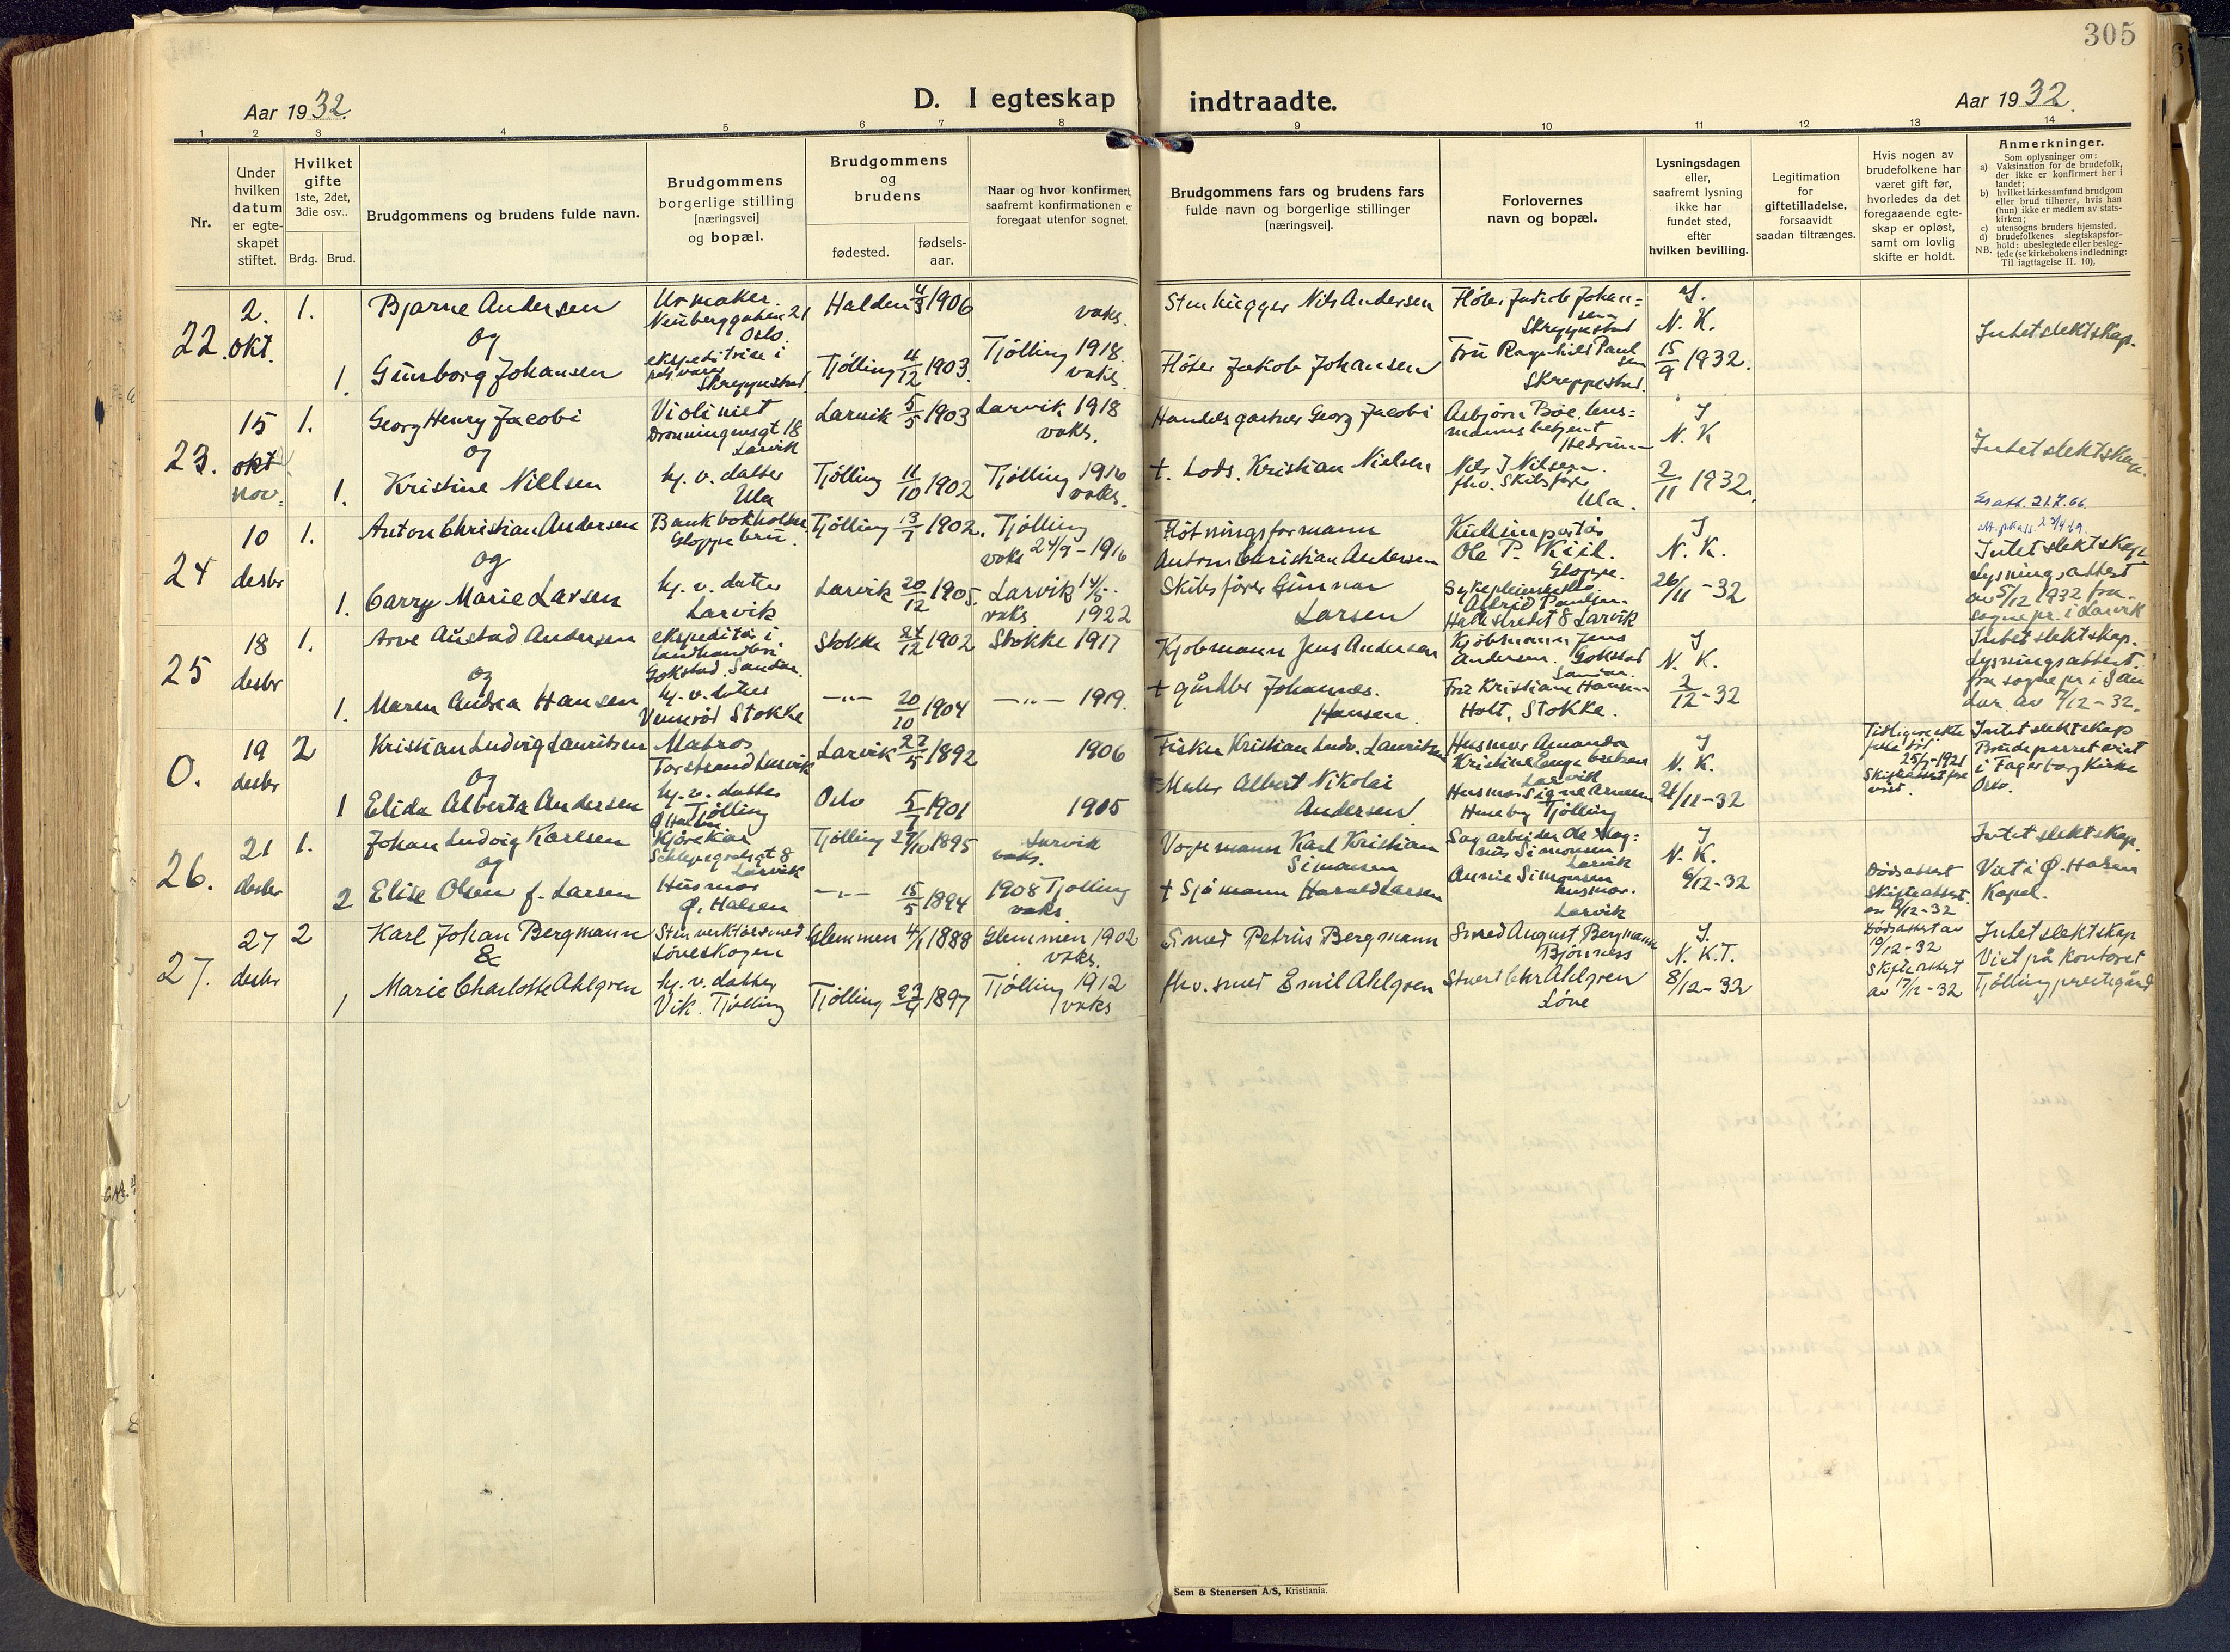 305
Aar 1932.
D. I egteskap indtraadte.
Aar 1932.
1 2 3 4 5 6 7 8 9 10 11 12 13 14
Nr.
Under
hvilken
datum
er egte-
skapet
stiftet.
Hvilket
gifte
1ste, 2det,
3die osv..
Brdg. Brud.
Brudgommens og brudens fulde navn.
Brudgommens
borgerlige stilling
[næringsvei]
og bopæl.
Brudgommens
og
brudens
fødested.
fødsels-
aar.
Naar og hvor konfirmert,
saafremt konfirmationen er
foregaat utenfor sognet.
Brudgommens fars og brudens fars
fulde navn og borgerlige stillinger
[næringsvei].
Forlovernes
navn og bopæl.
Lysningsdagen
eller,
saafremt lysning
ikke har
fundet sted,
efter
hvilken bevilling.
Legitimation
for
giftetilladelse,
forsaavidt
saadan tiltrænges.
Hvis nogen av
brudefolkene har
været gift før,
hvorledes da det
foregaaende egte-
skap er opløst,
samt om lovlig
skifte er holdt.
Anmerkninger.
Som oplysninger om:
a) Vaksination for de brudefolk,
der ikke er konfirmert her i
landet;
b) hvilket kirkesamfund brudgom
eller brud tilhører, hvis han
(hun) ikke er medlem av stats-
kirken;
c) utensogns bruders hjemsted.
d) brudefolkenes slegtskapsfor-
hold: ubeslegtede eller besleg-
NB. tede (se kirkebokens indledning:
Til iagttagelse II. 10).
22.
2.
okt.
1.
Bjarne Andersen
og
1.
Gunborg Johansen
Urmaker.
Neuberggaten 21
Oslo.
ekspeditrise i
Skreppestad
Halden 4/3 1906
Tjølling 11/12 1903.
vaks.
Tjølling 1918.
vaks.
Stenhugger Nils Andersen
Fløter Jakob Johansen
Fløter Jakob Johan=
sen
Skreppestad
Fru Ragnhild Paul
sen
Skreppestad.
N. K.
15/9 1932.
Intet slektskap.
23.
15
okt
nov.
1.
Georg Henry Jacobi
og
1.
Kristine Nillsen
Violinist
Dronningensgt 18
Larvik
hj. v. datter
Ula
Larvik 5/5 1903
Tjølling 11/10 1902
Larvik 1918
vaks.
Tjølling 1916
vaks.
Handelsgartner Georg Jacobi
+. Lods. Kristian Nielsen
Asbjørn Bøe, lens=
mannsbetjent
Hedrum
Nils J Nilsen.
fhv. Skibsfører
Ula.
J
N. K
2/11 1932.
Intet slektskap.
24
10
desbr
1.
Anton Christian Andersen
og
1.
Carry Marie Larsen
Bankbokholder
Gloppe bru.
hj. v. datter
Larvik
Tjølling 13/7 1902.
Larvik 20/12 1905.
Tjølling
vaks 24/9 - 1916
Larvik 14/5
vaks 1922
Fløtningsformann
Anton Christian Andersen
Skibsfører Gunnar
Larsen
Kullimportør
Ole P. Kiil.
Gloppe.
Sykepleierske
Astrid Paulsen
Larvik
J
N. K.
26/11 - 32
Intet slektskap
Lysningsattest
av 5/12 1932 fra
sognepr. i Larvik
25
18
desbr
1.
Arve Austad Andersen
og
1.
Maren Andrea Hansen
ekspeditør i
landhandleri
Gokstad. Sandar.
hj. v. datter
Vennerød Stokke
Stokke 24/12 1902
—"— 20/10 1904
Stokke 1917
—"— 1919.
Kjøbmann Jens Andersen
+ gårdbr Johannes.
Hansen.
Kjøbmann Jens
Andersen. Gokstad
Sandar.
Fru Kristiane Hansen
Holt, Stokke.
J
N. K.
2/12 - 32
Intet slektskap.
Lysningsattest.
fra sognepr i San
dar. av 7/12 - 32.
0.
19
desbr
2
Kristian Ludvig Lauritsen
og
1
Elida Alberta Andersen
Matros
Torstrand Larvik
hj. v. datter
Tjølling
Larvik 22/5 1892
Oslo 5/7 1901
1906
1905
Fisker Kristian Ludv. Lauritsen
Maler Albert Nikolai
Andersen
Husmor Amanda
Kristine Engebretsen
Larvik
Husmor Signe Arnesen
Tjølling
J
N. K.
21/11 - 32
Intet slektskap
Brudeparret viet
i Fagerborg Kirke
Oslo.
26.
21
desbr
1.
Johan Ludvig Karlsen
og
2
Elise Olsen f. Larsen
Kjørekar
Schleppegrelsgt 8
Larvik
Husmor
Ø. Halsen
Tjølling 27/10 1895
—"— 15/5 1894
Larvik
vaks.
1908 Tjølling
vaks
Vognmann Karl Kristian
Simonsen
+ Sjømann Harald Larsen
Sagarbeider Ole Mag=
nus Simonsen
Larvik
Annie Simonsen
husmor.
Larvik
J
N. K.
6/12 - 32
Dødsattest
Skifteattest.
Intet slektskap.
Viet i Ø. Halsen
Kapel.
27.
27
desbr
2
Karl Johan Bergmann
&
1
Marie Charlotte Ahlgren
Stenverktøismed
Løveskogen
hj. v. datter
Vik. Tjølling
Glemmen 4/1 1888
Tjølling 23/4 1897
Glemmen 1902
vaks.
Tjølling 1912
vaks
Smed Petrus Bergmann
fhv. smed Emil Ahlgren
Smed August Bergmann
Bjønness
Stuert Chr Ahlgren
Løve
J.
N. K.T.
8/12 - 32
Dødsattest av
10/12 - 32
Skifteattest
av 17/12 - 32
Intet slektskap
Viet på kontoret
Tjølling prestegård
Sem & Stenersen A/S, Kristiania.